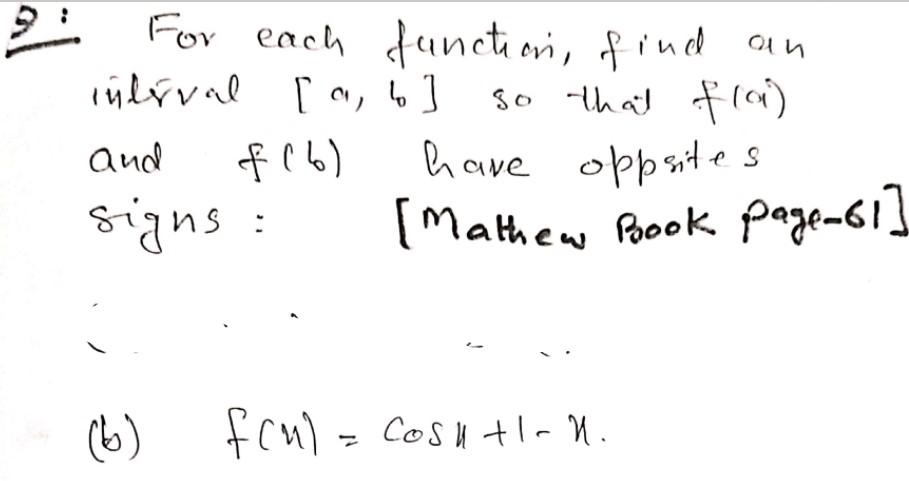 9: For each function, find an
interval [a, b] so that f(a)
and f(b) have oppsites
signs : [Mathew Book page-61]
(b) f(x) = cosx +1- x.